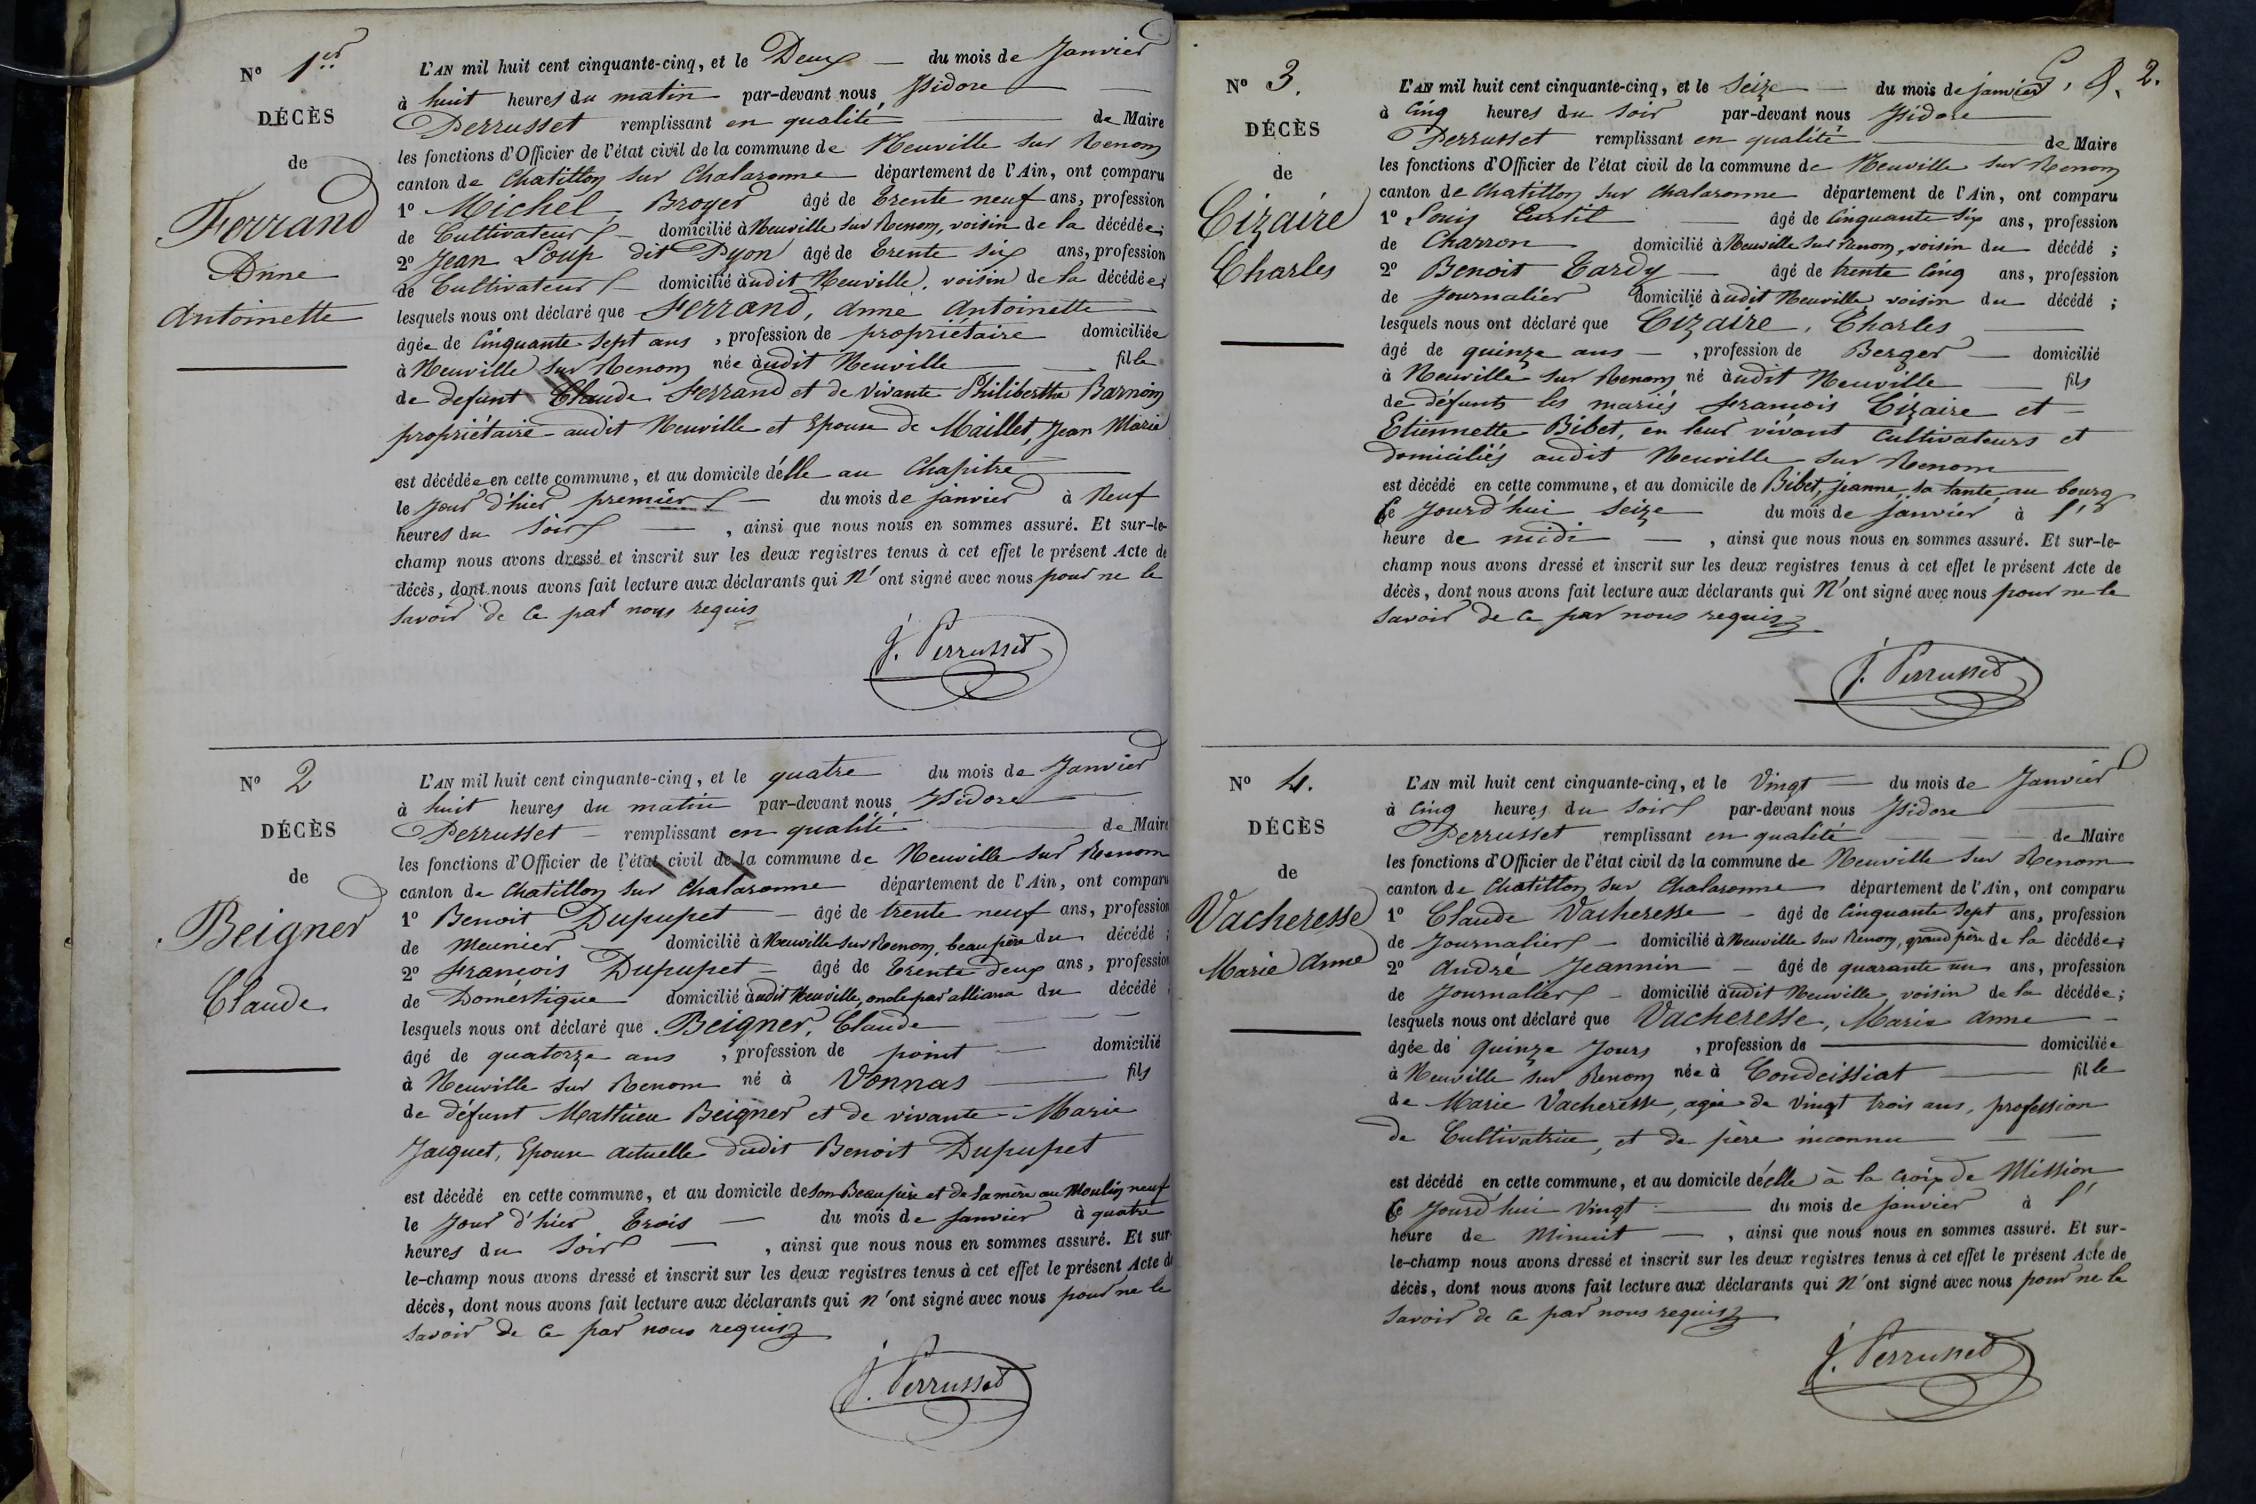 N° 1er
DÉCÈS
de
Ferrand
Anne
Antoinette
L'AN mil huit cent cinquante-cinq, et le Deux — du mois de Janvier
à huit heures du matin par-devant nous Isidore —
Perrusset remplissant en qualité — de Maire
les fonctions d'Officier de l'état civil de la commune de Neuville sur Renom
canton de Chatillon sur Chalaronne département de l'Ain, ont comparu
1° Michel Broyer âgé de trente neuf ans, profession
de Cultivateur — domicilié à Neuville sur Renom, voisin de la décédée;
2° Jean Loup dit Dyon âgé de trente six ans, profession
de Cultivateur — domicilié audit Neuville, voisin de la décédée;
lesquels nous ont déclaré que Ferrand, anne antoinette
âgée de Cinquante Sept ans, profession de propriétaire domiciliée
à Neuville sur Renom née audit Neuville — fille
de defunt Claude Ferrand et de vivante Philiberthe Barnoin
propriétaire audit Neuville et Epouse de Maillet, Jean Marie
est décédée en cette commune, et au domicile d'elle au Chapitre
le jour d'hier premier — du mois de janvier à Neuf
heures du soir —, ainsi que nous nous en sommes assuré. Et sur-le-
champ nous avons dressé et inscrit sur les deux registres tenus à cet effet le présent Acte de
décès, dont nous avons fait lecture aux déclarants qui n'ont signé avec nous pour ne le
savoir de ce par nous requis
J. Perrusset
N° 2
DÉCÈS
de
Beigner
Claude
L'AN mil huit cent cinquante-cinq, et le quatre du mois de Janvier
à huit heures du matin par-devant nous Isidore —
Perrusset — remplissant en qualité — de Maire
les fonctions d'Officier de l'état civil de la commune de Neuville sur Renom
canton de Chatillon sur Chalaronne département de l'Ain, ont comparu
1° Benoit Dupupet — âgé de trente neuf ans, profession
de Meunier domicilié à Neuville sur Renom, beau père du décédé;
2° François Dupupet — âgé de trente deux ans, profession
de Doméstique domicilié audit Neuville, oncle par alliance du décédé
lesquels nous ont déclaré que Beigner, Claude — — —
âgé de quatorze ans, profession de point — domicilié
à Neuville sur Renom né à Vonnas — fils
de défunt Mathieu Beigner et de vivante Marie
Jacquet, Epouse actuelle dudit Benoit Dupupet
est décédé en cette commune, et au domicile de son Beau père et de sa mère au Moulin neuf
le jour d'hier trois — du mois de janvier à quatre
heures du soir —, ainsi que nous nous en sommes assuré. Et sur-
le-champ nous avons dressé et inscrit sur les deux registres tenus à cet effet le présent Acte de
décès, dont nous avons fait lecture aux déclarants qui n'ont signé avec nous pour ne le
savoir de ce par nous requis
J. Perrusset
2.
N° 3.
DÉCÈS
de
Cizaire
Charles
L'AN mil huit cent cinquante-cinq, et le Seize — du mois de janvier
à Cinq heures du soir par-devant nous Isidore
Perrusset remplissant en qualité — de Maire
les fonctions d'Officier de l'état civil de la commune de Neuville sur Renom
canton de Chatillon sur Chalaronne département de l'Ain, ont comparu
1° Louis Curtil — âgé de Cinquante Six ans, profession
de Charron domicilié à Neuville sur Renom, voisin du décédé;
2° Benoit Tardy — âgé de trente Cinq ans, profession
de Journalier domicilié audit Neuville voisin du décédé;
lesquels nous ont déclaré que Cizaire, Charles —
âgé de quinze ans —, profession de Berger — domicilié
à Neuville sur Renom né audit Neuville — fils
de défunts les mariés François Cizaire et —
Etiennette Bibet, en leur vivant Cultivateurs et
domiciliés audit Neuville sur Renom
est décédé en cette commune, et au domicile de Bibet, jeanne, sa tante, au bourg
Ce jourd'hui seize du mois de janvier à l'
heure de midi —, ainsi que nous nous en sommes assuré. Et sur-le-
champ nous avons dressé et inscrit sur les deux registres tenus à cet effet le présent Acte de
décès, dont nous avons fait lecture aux déclarants qui N'ont signé avec nous pour ne le
savoir de ce par nous requis
J. Perrusset
N° 4.
DÉCÈS
de
Vacheresse
Marie Anne
L'AN mil huit cent cinquante-cinq, et le Vingt — du mois de Janvier
à Cinq heures du soir par-devant nous Isidore
Perrusset remplissant en qualité — de Maire
les fonctions d'Officier de l'état civil de la commune de Neuville sur Renom
canton de Chatillon sur Chalaronne département de l'Ain, ont comparu
1° Claude Vacheresse — âgé de Cinquante Sept ans, profession
de Journalier — domicilié à Neuville sur Renom, grand père de la décédée;
2° André Jeannin — âgé de quarante un ans, profession
de Journalier — domicilié audit Neuville, voisin de la décédée;
lesquels nous ont déclaré que Vacheresse, Marie Anne —
âgée de quinze jours, profession de — domiciliée
à Neuville sur Renom née à Condeissiat — fille
de Marie Vacheresse, agée de Vingt trois ans, profession
de Cultivatrice, et de père inconnu — —
est décédé en cette commune, et au domicile d'elle à la Croix de Mission
Ce jourd'hui Vingt — du mois de janvier à l'
heure de Minuit —, ainsi que nous nous en sommes assuré. Et sur-
le-champ nous avons dressé et inscrit sur les deux registres tenus à cet effet le présent Acte de
décès, dont nous avons fait lecture aux déclarants qui N'ont signé avec nous pour ne le
savoir de ce par nous requis
J. Perrusset